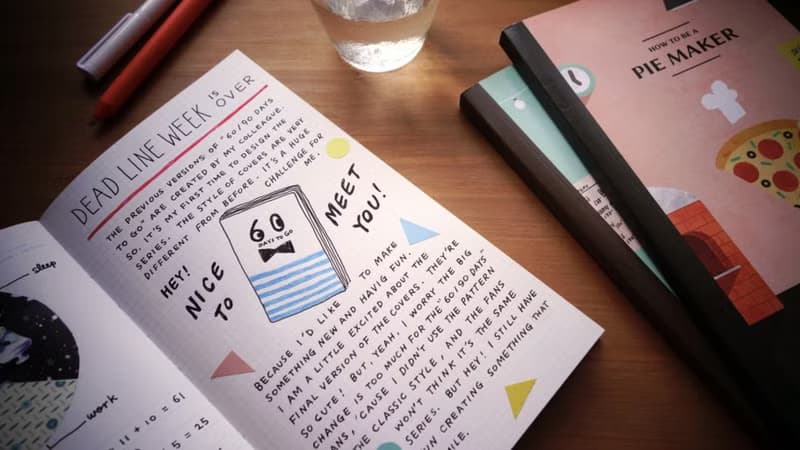 DEAD LINE WEEK IS OVER
THE PREVIOUS VERSIONS OF "60/90 DAYS
TO GO" ARE CREATED BY MY COLLEAGUE.
SO, IT'S MY FIRST TIME TO DESIGN THE
SERIES. THE STYLE OF COVERS ARE VERY
DIFFERENT FROM BEFORE. IT'S A HUGE
CHALLENGE FOR
ME.
HEY!
NICE
TO
MEET
YOU!
60
DAYS TO GO
BECAUSE I'D LIKE TO MAKE
SOMETHING NEW AND HAVIG FUN.
I AM A LITTLE EXCITED ABOUT THE
FINAL VERSION OF THE COVERS. THEY'RE
SO CUTE! BUT YEAH, I WORRY THE BIG
CHANGE IS TOO MUCH FOR THE "60/90 DAYS"
ANS, 'CAUSE I DIDN'T USE THE PATTERN
THE CLASSIC STYLE, AND THE FANS
WON'T THINK IT'S THE SAME
SERIES. BUT HEY! I STILL HAVE
UN CREATING SOMETHING THAT
MILE.
sleep
work
11 + 10 = 61
5 = 25
HOW TO BE A
PIE MAKER